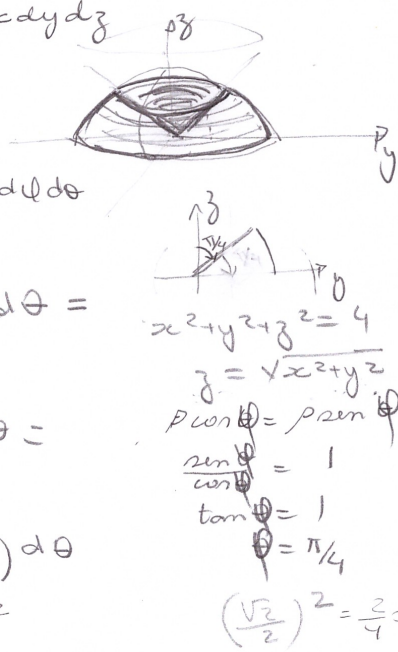 dydz
z
y
dφdθ
z
π/4
y
dθ =
x²+y²+z² = 4
z = √x²+y²
ρcosφ = ρsenφ
θ =
senφ/cosφ = 1
tanφ = 1
) dθ
φ = π/4
(√2/2)² = 2/4 =